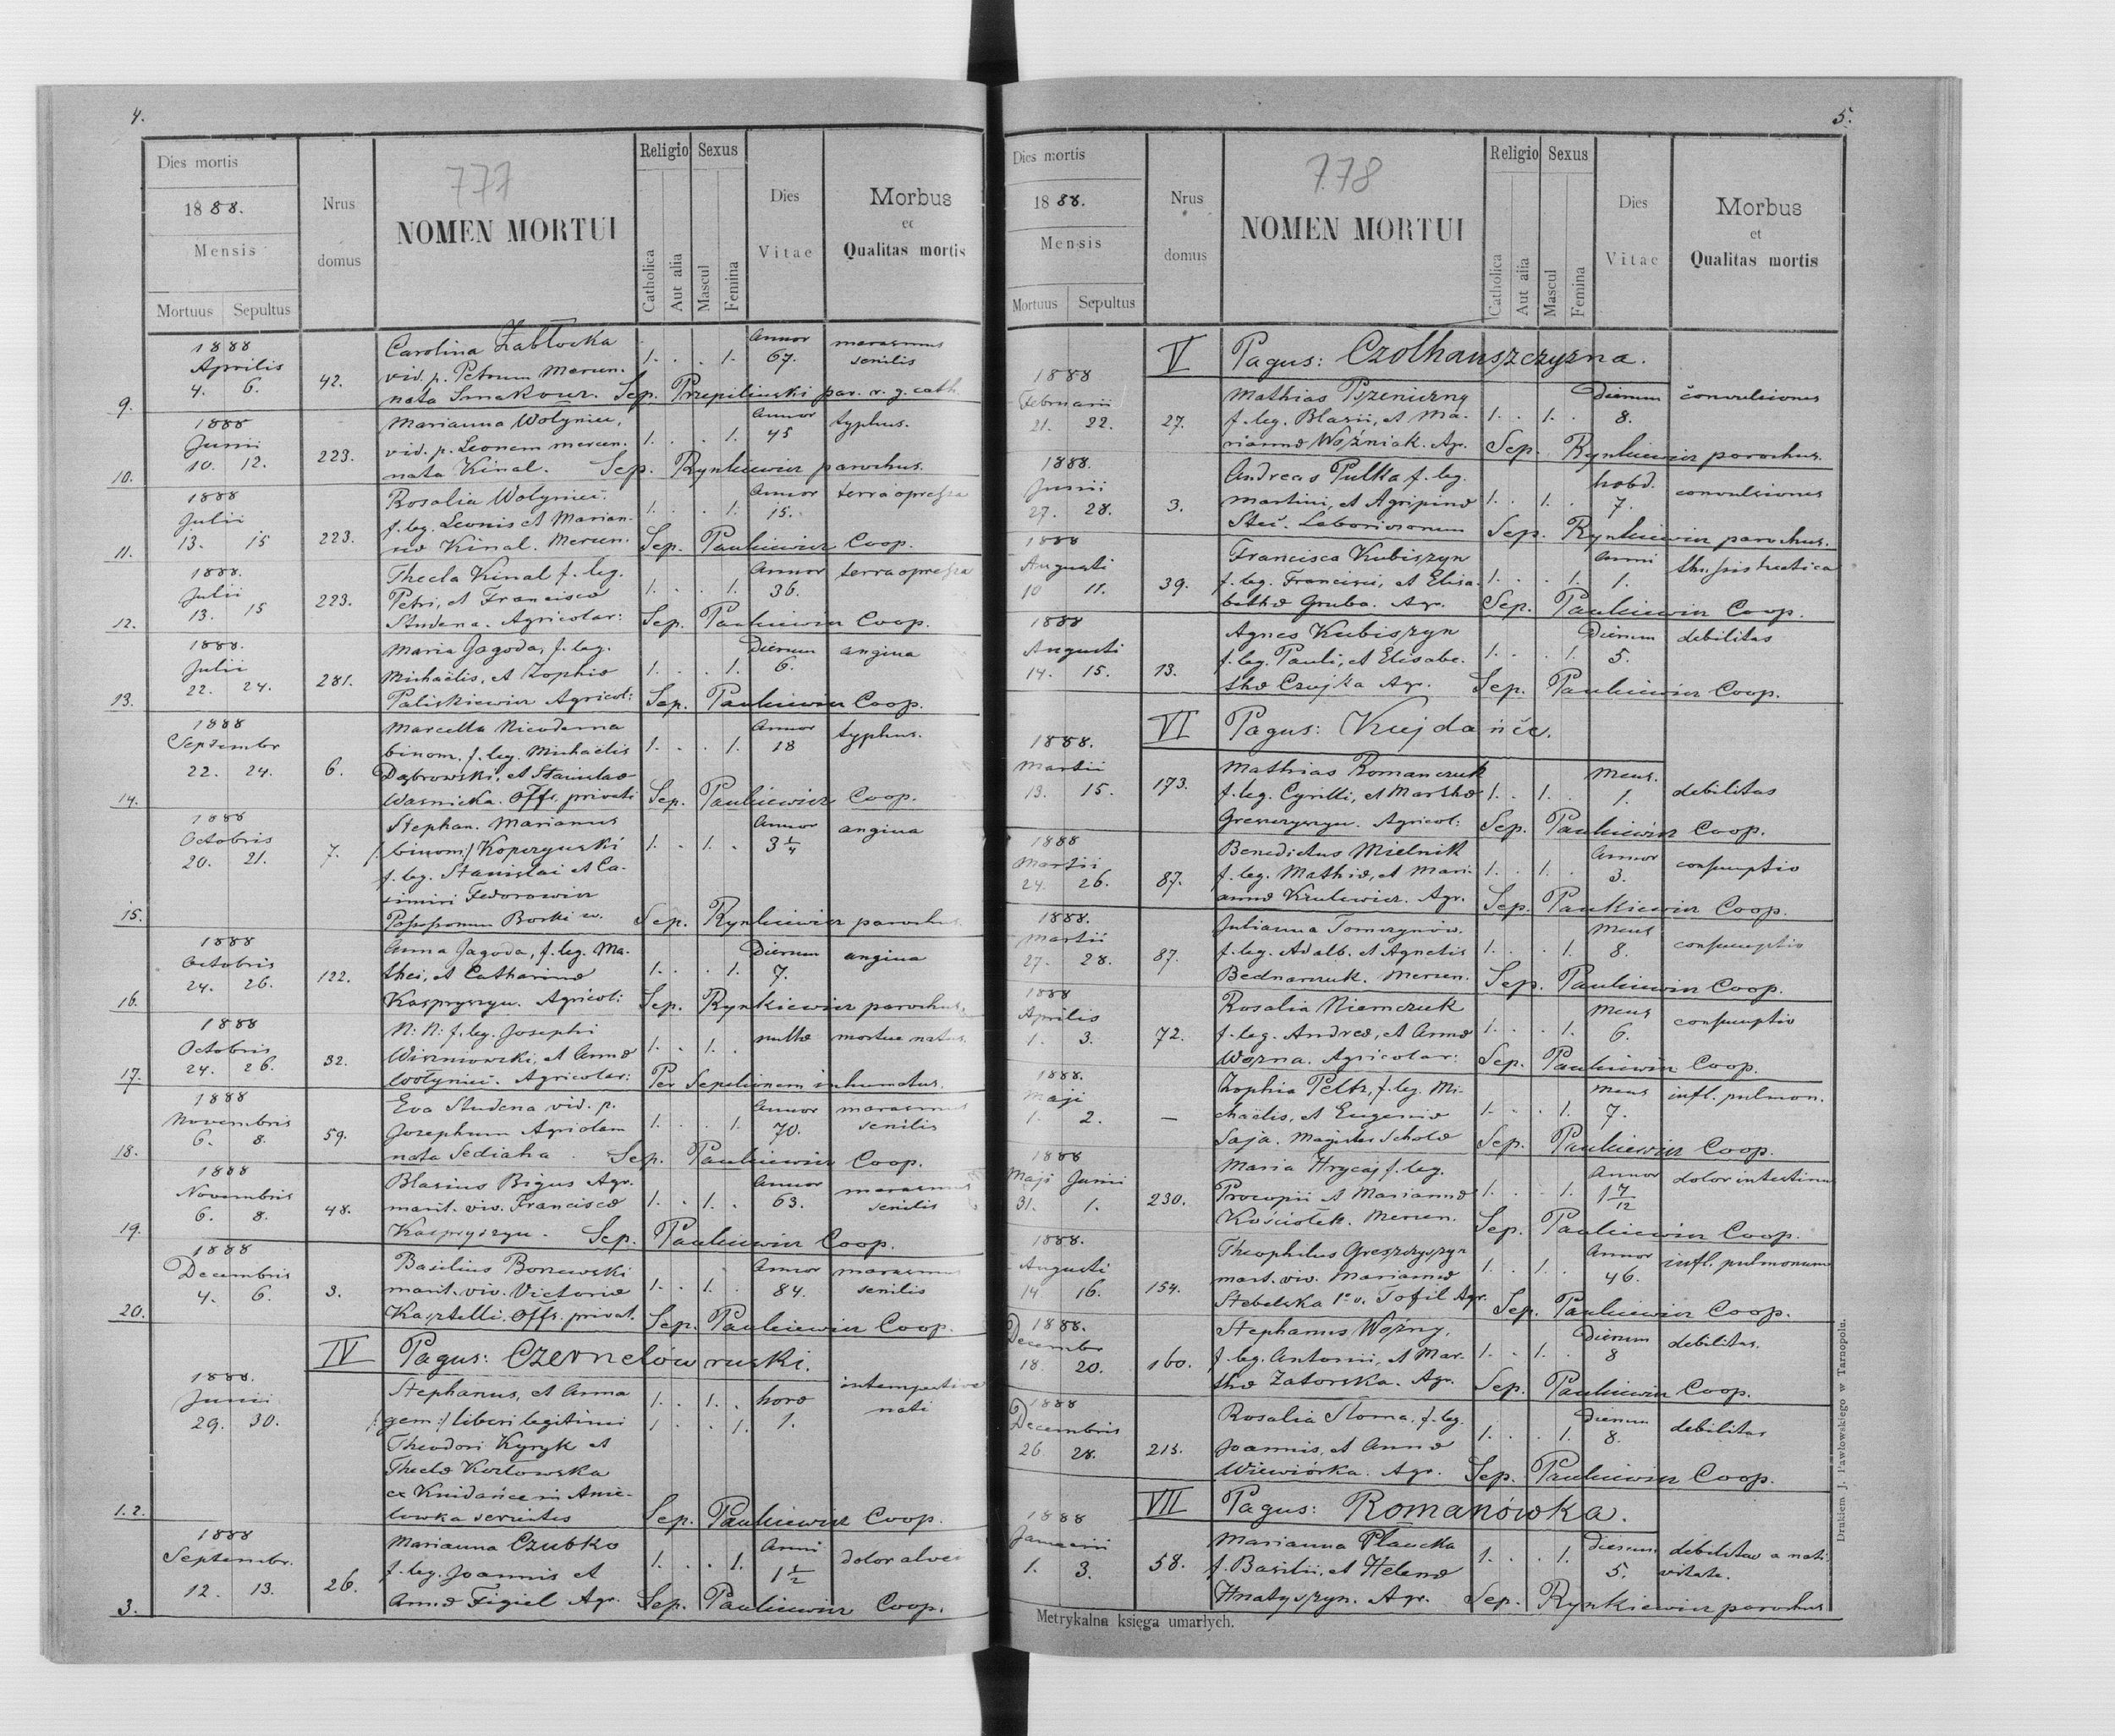 4.
777
Dies mortis
1888.
Mensis
Mortuus Sepultus
Nrus domus
NOMEN MORTUI
Religio Sexus
Catholica Aut alia Mascul Femina
Dies Vitae
Morbus
et
Qualitas mortis
1888 Carolina Zabłocka Annor marasmus
Aprilis vid. p. Petrum Mercen. 1. 1. 67. senilis
9. 4. 6. 42. nata Smakowr. Sep. Przepiliuski par. r. g. cath.
1888 Marianna Wołyniec, Annor typhus.
Junii vid. p. Leonem mercen. 1. 1. 45
10. 10. 12. 223. nata Kinal. Sep. Rynkiewicz parochus.
1888 Rosalia Wołyniec. Annor terra opressa
Julii f. leg. Leonis et Marian- 1. 1. 15.
11. 13. 15 223. nae Kinal. Mercen. Sep. Paukiewicz Coop.
1888. Thecla Kinal f. leg. Annor terra opressa
Julii Petri, et Franciscae 1. 1. 36.
12. 13. 15 223. Studena. Agricolar: Sep. Paukiewicz Coop.
1888. Maria Jagoda, f. leg. Dierum angina
Julii Michaëlis, et Zophiae 1. 1. 6.
13. 22. 24. 281. Paliskiewicz Agricol: Sep. Paukiewicz Coop.
1888 Marcella Nicodema Annor typhus.
Septembr binom. f. leg. Michaëlis 1. 1. 18
22. 24. 6. Dąbrowski, et Stanislae
14. Wasnicka. Offs. privati Sep. Paukiewicz Coop.
1888 Stephan. Marianus Annor angina
Octobris /:binom:/ Kopczyński 1. 1. 3 1/4
20. 21. 7. f. leg. Stanislai et Ca-
simiri Fedorowicz
15. Possessorum Borki w. Sep. Rynkiewicz parochus.
1888 Anna Jagoda, f. leg. Ma- Dierum angina
Octobris thei, et Catharinae 1. 1. 7.
16. 24. 26. 122. Kaspryszyn. Agricol: Sep. Rynkiewicz parochus.
1888 N: N: f. leg. Josephi nullae mortue natus.
Octobris Wiszniowski, et Annae 1. 1.
17. 24. 26. 32. Wołyniec. Agricolar: Per Sepelionem inhumatus.
1888 Eva Studena vid. p. Annor marasmus
Novembris Josephum Agricolam 1. 1. 70. senilis
18. 6. 8. 59. nata Sediaha. Sep. Paukiewicz Coop.
1888 Blasius Bigus Agr. Annor marasmus
Novembris marit. viv. Franciscae 1. 1. 63. senilis
19. 6. 8. 48. Kaspryszyn. Sep. Paukiewicz Coop.
1888 Basilius Borzewski Annor marasmus
Decembris marit. viv. Victoriae 1. 1. 84. senilis
20. 4. 6. 3. Kasztelli. Offs. privat. Sep. Paukiewicz Coop.
IV Pagus: Czernelów ruski.
1888. Stephanus, et Anna 1. 1. horae intempestive
Junii /:gem:/ liberi legitimi 1. 1. 1. nati
29. 30. Theodori Kyryk et
Theclae Kozłowska
ex Kuidańce in Anie-
1.2. lowka servientes Sep. Paukiewicz Coop.
1888 Marianna Czubko Anni dolor alvei
Septembr. f. leg. Joannis et 1. 1. 1 1/2
3. 12. 13. 26. Annae Figiel Agr. Sep. Paukiewicz Coop.
5.
778
Dies mortis
1888.
Mensis
Mortuus Sepultus
Nrus domus
NOMEN MORTUI
Religio Sexus
Catholica Aut alia Mascul Femina
Dies Vitae
Morbus
et
Qualitas mortis
V Pagus: Czołhańszczyzna.
1888 Mathias Pszeniczny Dierum convulsiones
Februarii f. leg. Blasii, et Ma- 1. 1. 8.
21. 22. 27. riannae Woźniak. Agr. Sep. Rynkiewicz parochus.
1888. Andreas Pulka f. leg. hebd. convulsiones
Junii Martini, et Agripinae 1. 1. 7.
27. 28. 3. Stec. Laboriosorum Sep. Rynkiewicz parochus.
1888 Francisca Kubiszyn Anni thissis hectica
Augusti f. leg. Francisci, et Elisa- 1. 1. 1.
10 11. 39. bethae Gruba. Agr. Sep. Paukiewicz Coop.
1888 Agnes Kubiszyn Dierum debilitas
Augusti f. leg. Pauli, et Elisabe- 1. 1. 5.
14. 15. 13. thae Czujka Agr. Sep. Paukiewicz Coop.
VI Pagus: Kujdańce.
1888. Mathias Romanczuk Mens. debilitas
Martii f. leg. Cyrilli, et Marthae 1. 1. 1.
13. 15. 173. Greszczyszyn. Agricol: Sep. Paukiewicz Coop.
1888 Benedictus Mielnik Annor consumptio
Martii f. leg. Mathiae, et Mari- 1. 1. 3.
24. 26. 87. annae Krulewicz. Agr. Sep. Paukiewicz Coop.
1888. Julianna Tomczynów. Mens consumptio
Martii f. leg. Adalb. et Agnetis 1. 1. 8.
27. 28. 87. Bednarczuk. Mercen. Sep. Paukiewicz Coop.
1888 Rosalia Niemczuk Mens consumptio
Aprilis f. leg. Andreae, et Annae 1. 1. 6.
1. 3. 72. Wozna. Agricolar: Sep. Paukiewicz Coop.
1888. Zophia Peltz, f. leg. Mi- Mens infl. pulmon.
Maji chaëlis, et Eugeniae 1. 1. 7.
1. 2. — Saja. Magister Scholae Sep. Paukiewicz Coop.
1888 Maria Hrycaj f. leg. Annor dolor intestinu
Maji Junii Procopii et Mariannae 1. 1. 1 7/12
31. 1. 230. Kościołek. Mercen. Sep. Paukiewicz Coop.
1888. Theophilus Greszczyszyn Annor infl. pulmonum
Augusti mart. viv. Mariannae 1. 1. 46.
14 16. 154. Stebelska 1o v. Tofil Agr. Sep. Paukiewicz Coop.
1888. Stephanus Wozny, Dierum debilitas.
Decembr f. leg. Antonii, et Mar- 1. 1. 8
18. 20. 160. thae Zatorska. Agr. Sep. Paukiewicz Coop.
1888 Rosalia Słoma, f. leg. Dierum debilitas
Decembris Joannis, et Annae 1. 1. 8.
26. 28. 215. Wiewiórka. Agr. Sep. Paukiewicz Coop.
VII Pagus: Romanówka.
1888 Marianna Plaucka Dierum debilitas a nati-
Januarii f. Basilii, et Helenae 1. 1. 5. vitate.
1. 3. 58. Hnatyszyn. Agr. Sep. Rynkiewicz parochus
Metrykalna księga umarłych.
Drukiem J. Pawłowskiego w Tarnopolu.